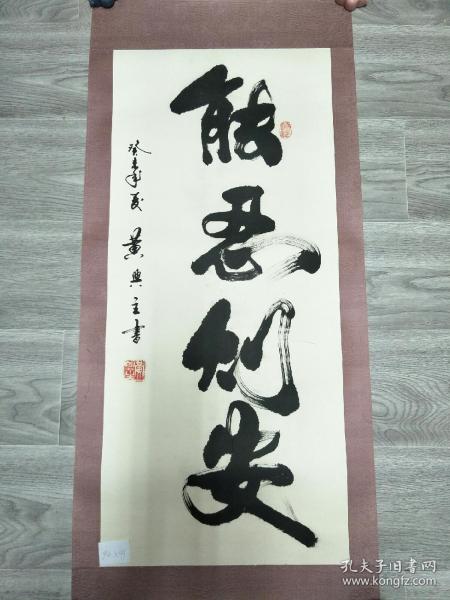 能忍则安
癸未年
黄兴主书
孔夫子旧书网
www.kongfz.com